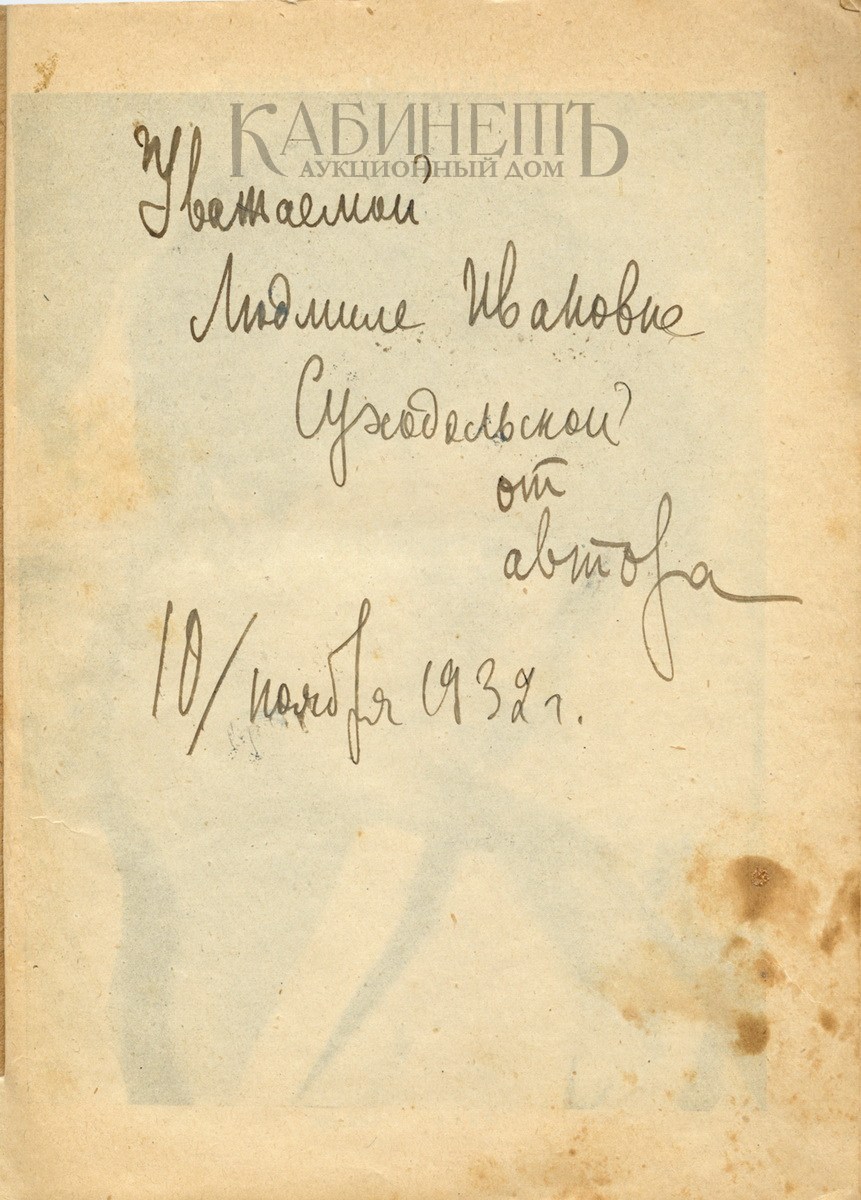 КАБИНЕТЪ
АУКЦИОННЫЙ ДОМ
Уважаемой
Людмиле Ивановне
Суходольской
от
автора
10/ ноября 1932 г.